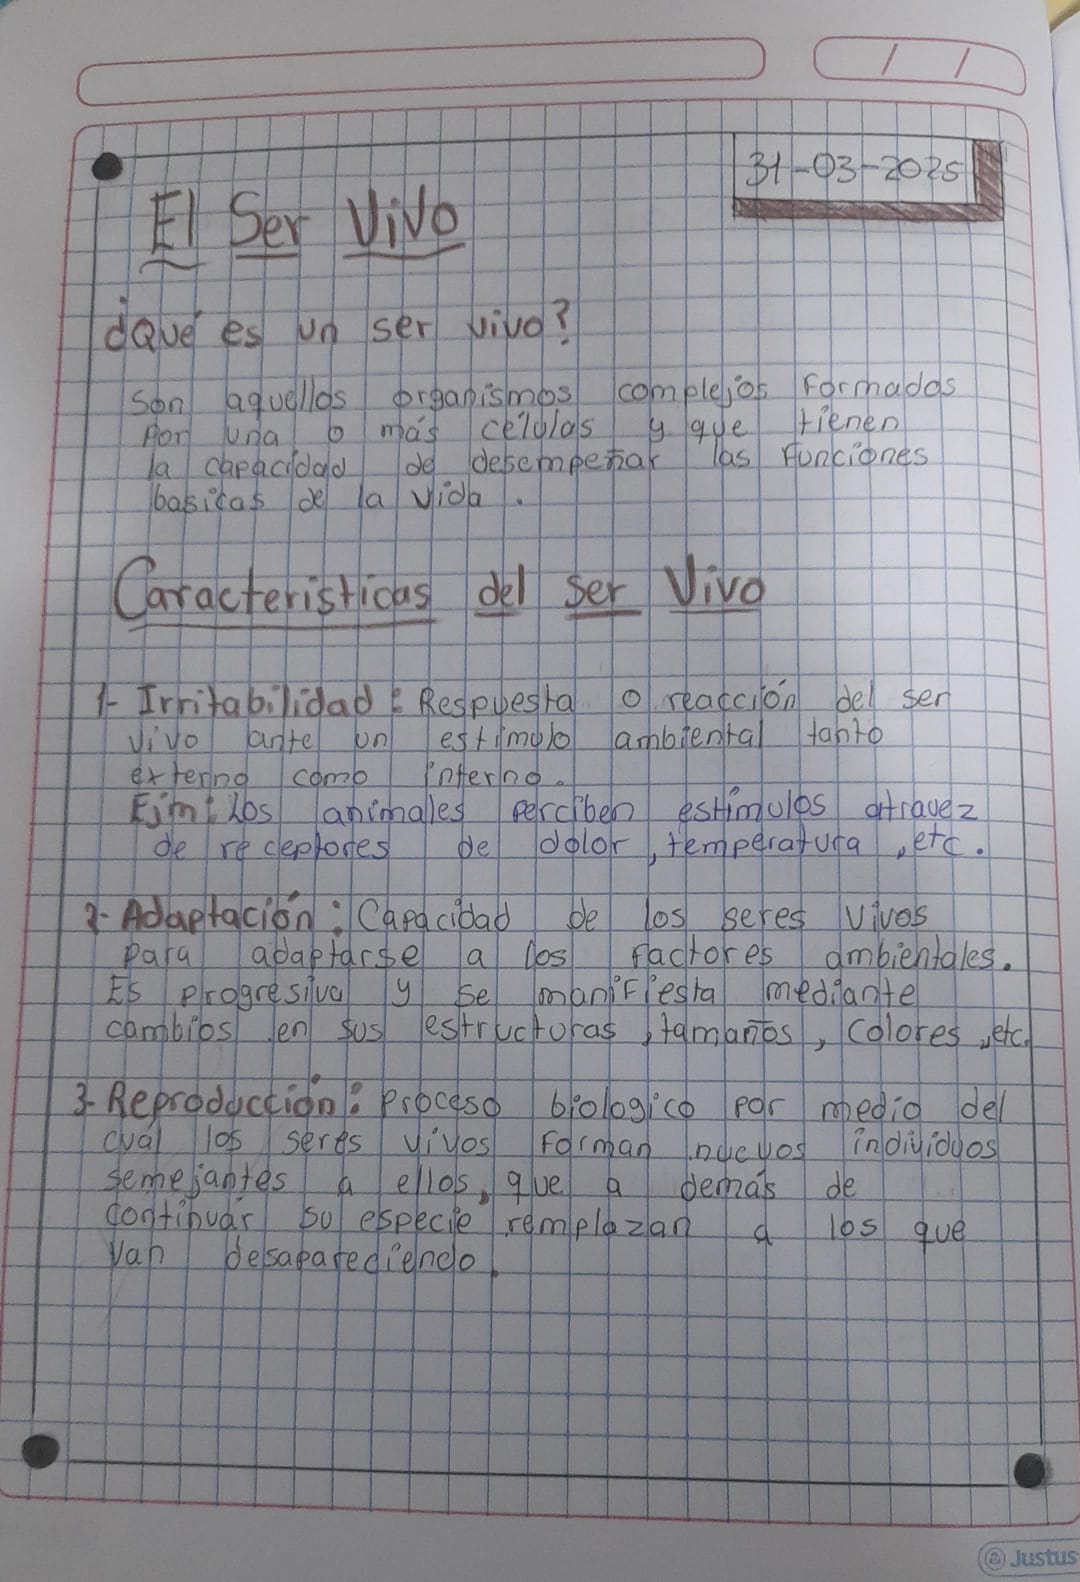 31-03-2025
El Ser Vivo
¿Qué es un ser vivo?
Son aquellos organismos complejos formados
por una o más células y que tienen
la capacidad de desempeñar las funciones
basicas de la vida.
Caracteristicas del ser Vivo
1- Irritabilidad: Respuesta o reacción del ser
vivo ante un estimulo ambiental tanto
externo como interno.
Ejm: Los animales perciben estímulos atravez
de receptores de dolor, temperatura, etc.
2- Adaptación: Capacidad de los seres vivos
para adaptarse a los factores ambientales.
Es progresiva y se manifiesta mediante
cambios en sus estructuras, tamaños, colores, etc.
3- Reproducción: Proceso biologico por medio del
cual los seres vivos forman nuevos individuos
semejantes a ellos, que a demás de
continuar su especie remplazan a los que
van desaparediendo.
Justus